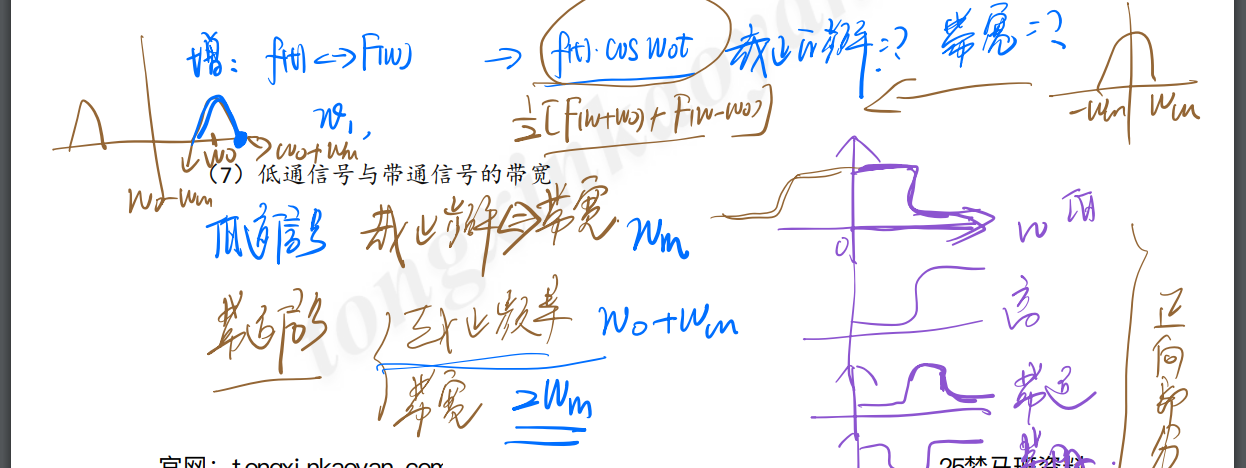 增: f(t)<->F(w) → f(t)·cosw₀t 截止频率=? 带宽=?
½[F(w+w₀)+F(w-w₀)]
-wm wm
w₁,
w₀ w₀+wm
w₀-wm
(7) 低通信号与带通信号的带宽
低通信号 截止频率<=>带宽 wm
0 w 低
带通信号 截止频率 w₀+wm
高
带宽 2wm
带通
正向部分
官网: tongxinkaoyan.com
tongxinkaoyan